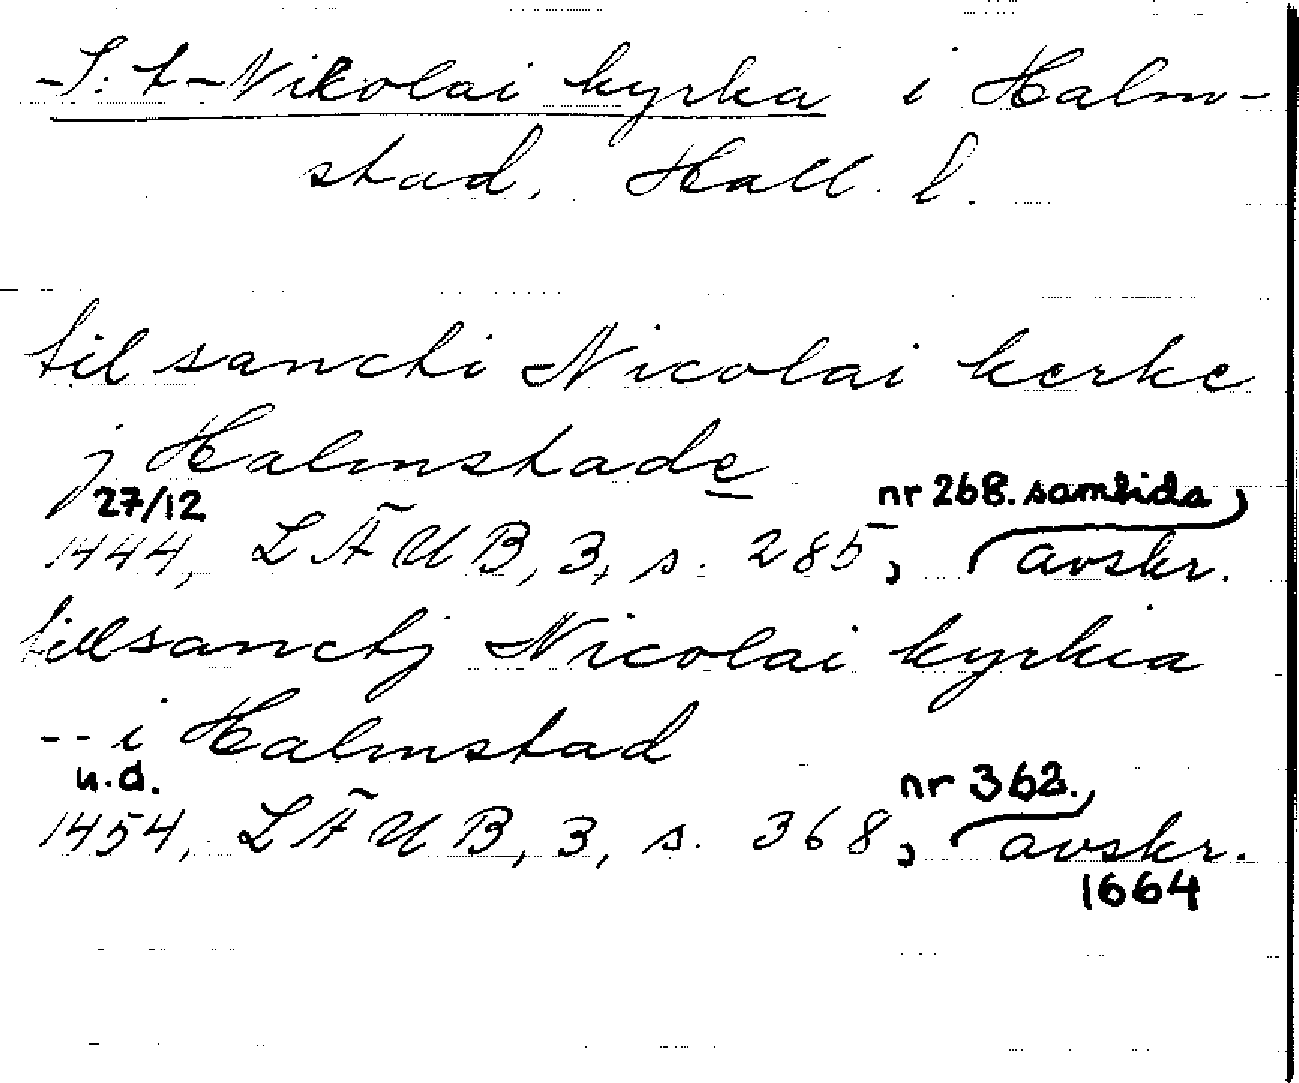 -S:t-Nikolai kyrka i Halm-
stad. Hall. l.
til sancti Nicolai kerke
j Halmstade
27/12 nr 268. samtida
1444, LÄUB, 3, s. 285, avskr.
till sanctj Nicolai kyrkia
-- i Halmstad
u.d. nr 362.
1454, LÄUB, 3, s. 368, avskr.
1664